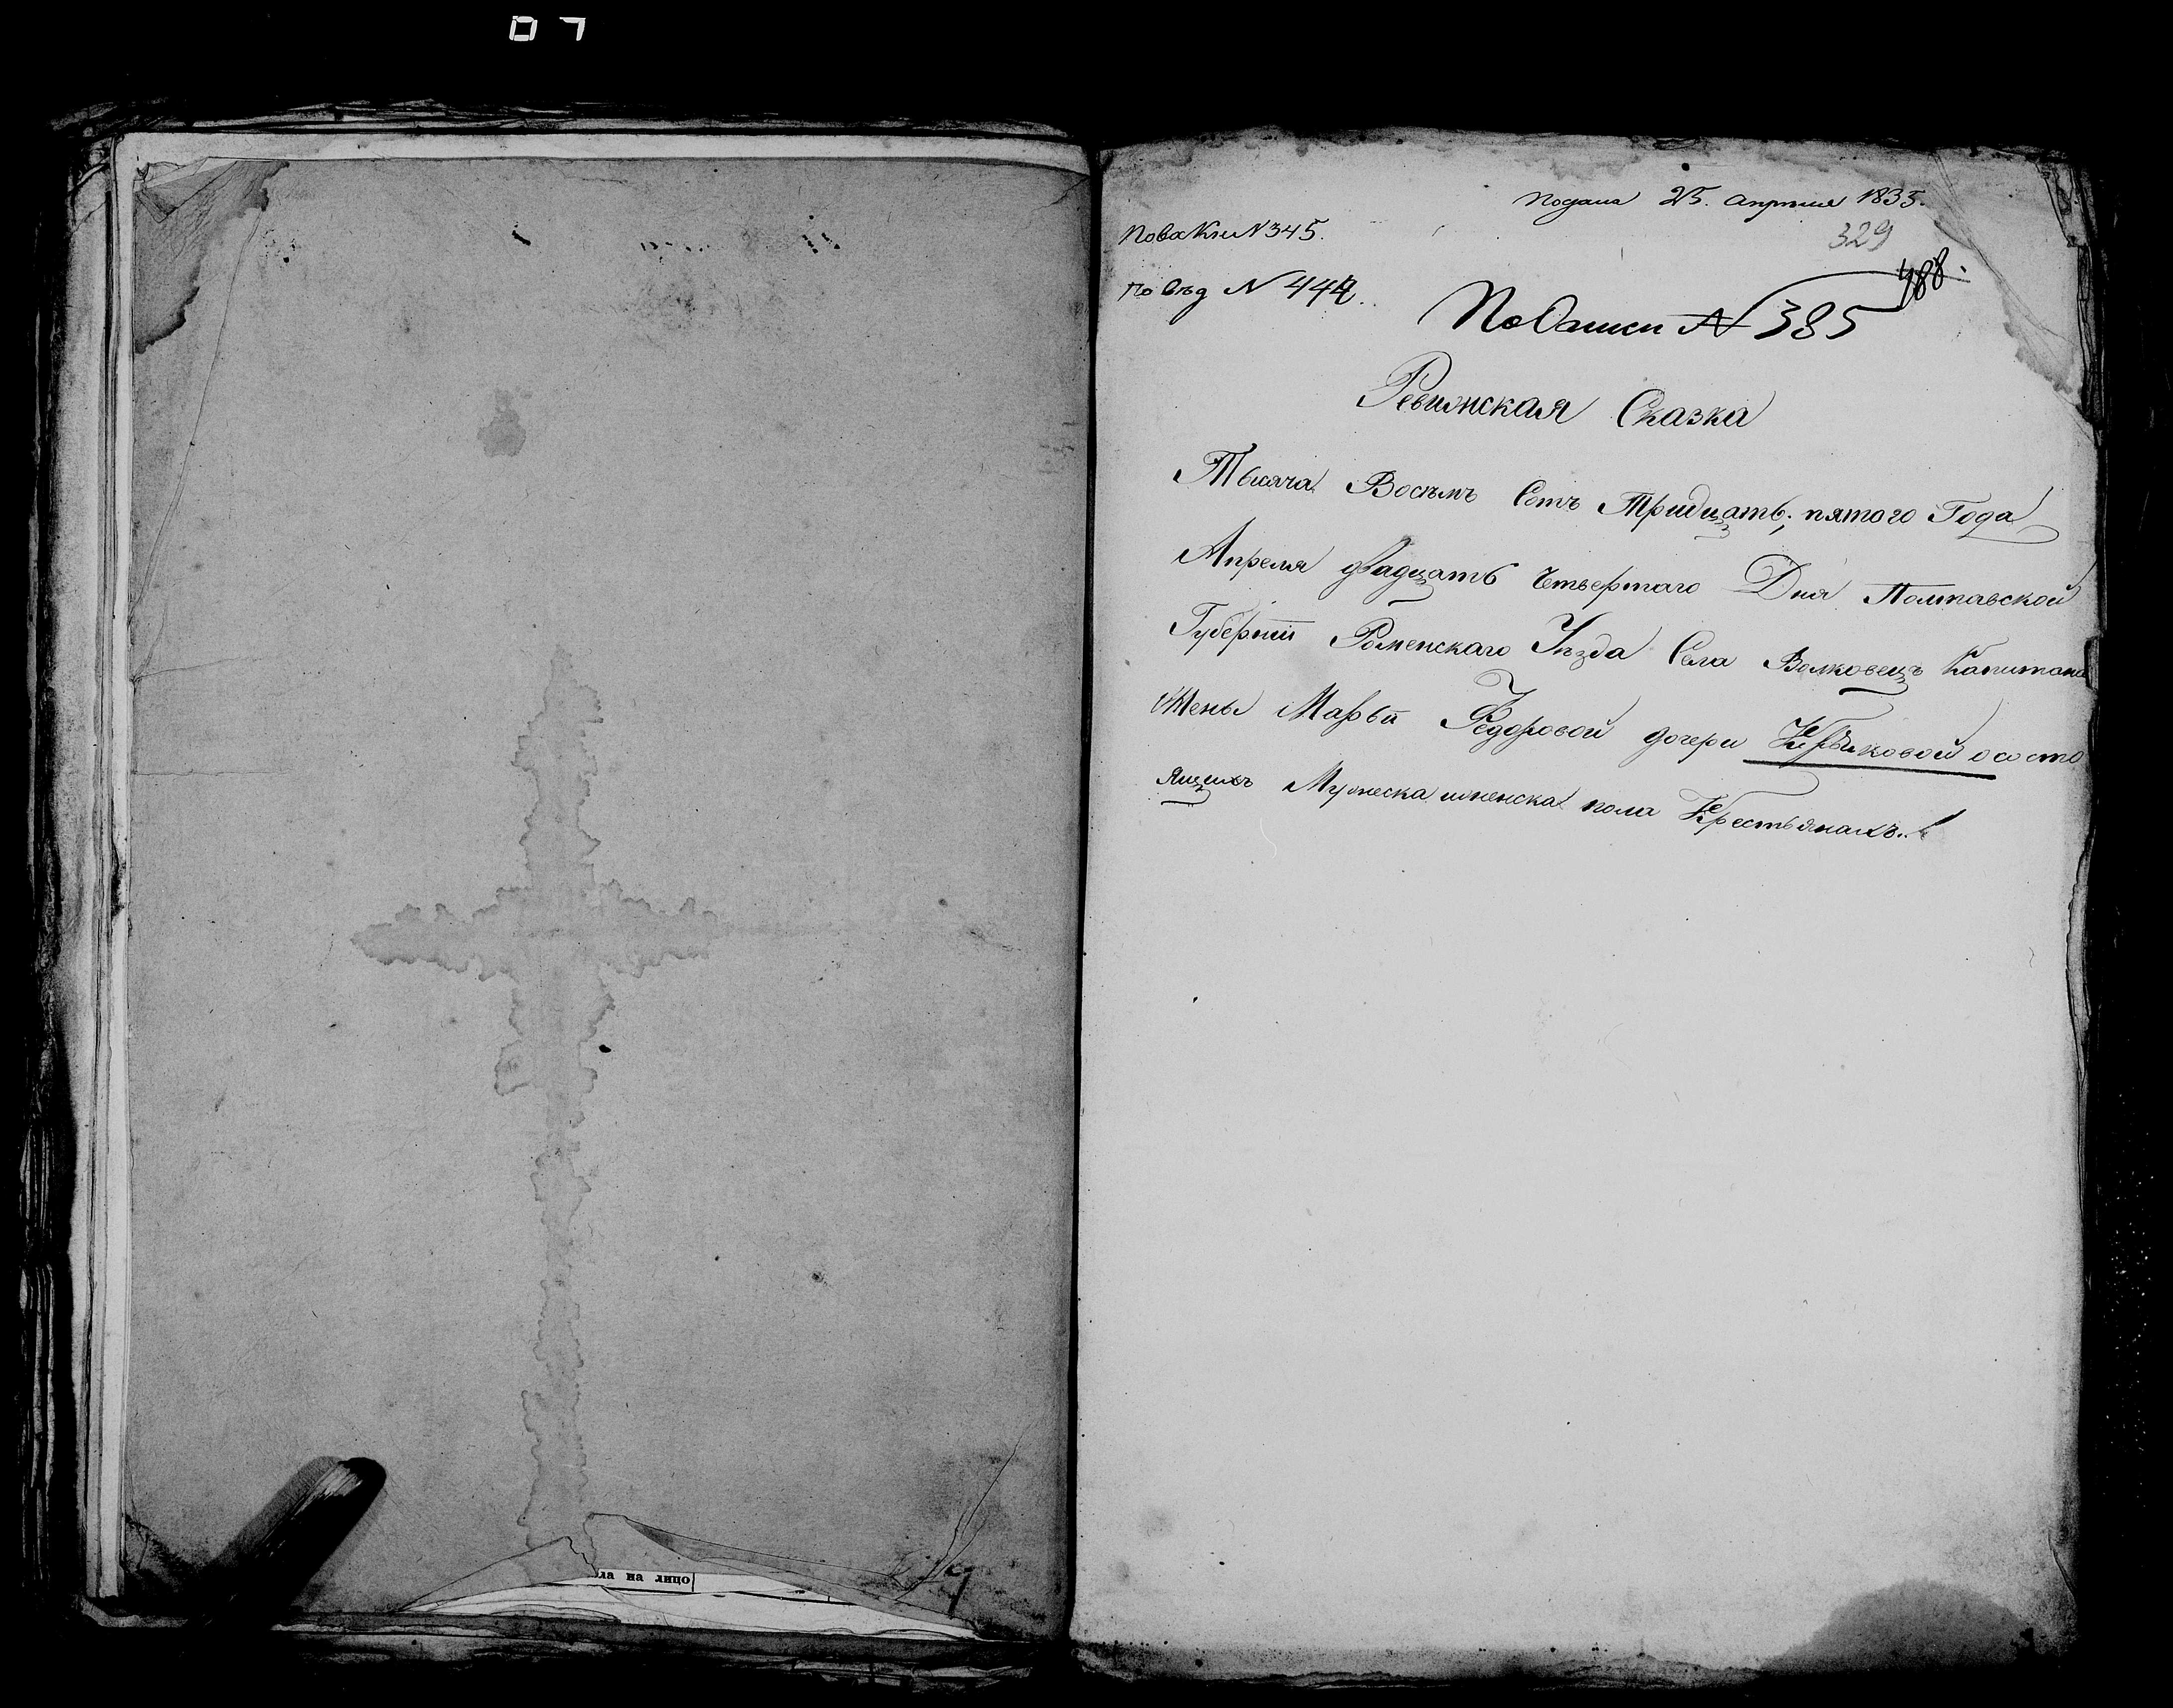 ла на лицо
подана 25. апреля 1835.
По вх Кни N 345.
329
По вѣд N 444.
488.
По Описи N 385
Ревижская Сказка
Тысяча Восѣмъ Сотъ Тридцать; пятого Года
Апреля двадцать Четвертаго Дня Полтавской
Губернїи Роменскаго Уѣзда Села Волковецъ Капитана
Жены Марьи Федоровой дочери осото
ящихъ Мужеска иженска пола Крестьянахъ.